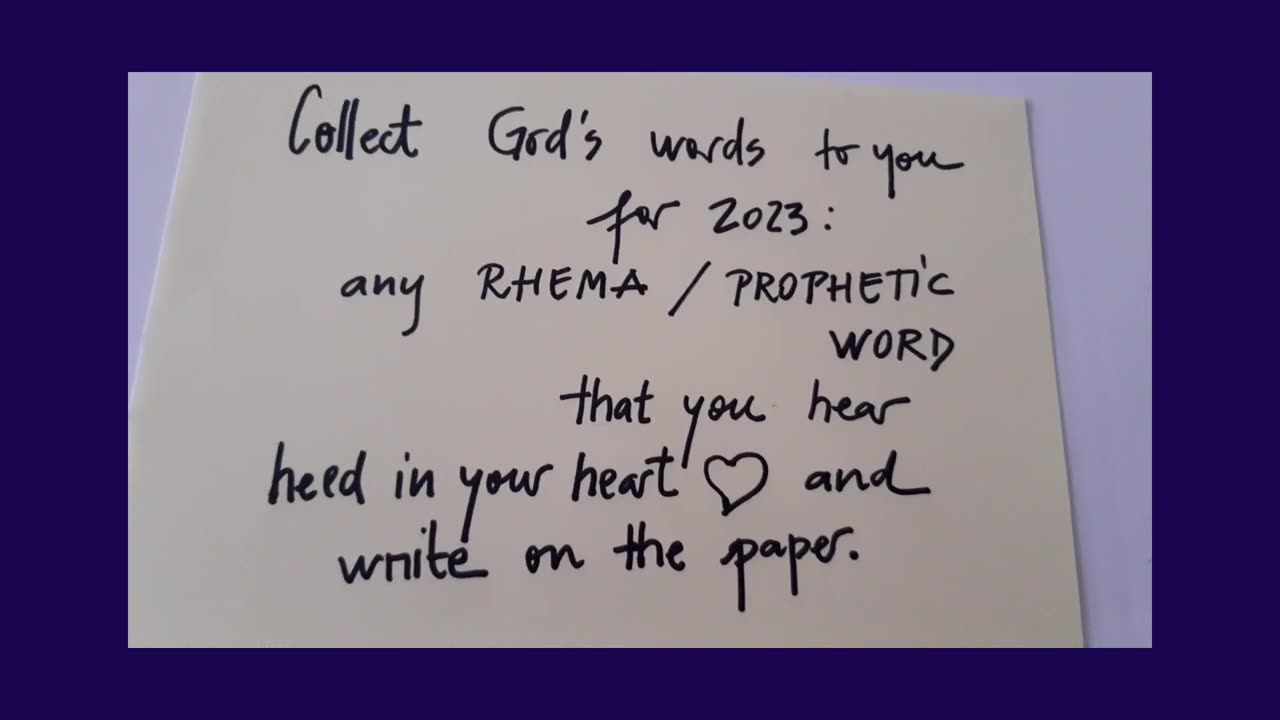 Collect God's words to you
for 2023:
any RHEMA / PROPHETIC
WORD
that you hear
heed in your heart ♡ and
write on the paper.